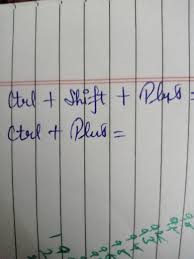 Ctrl + Shift + Plus =
Ctrl + Plus =